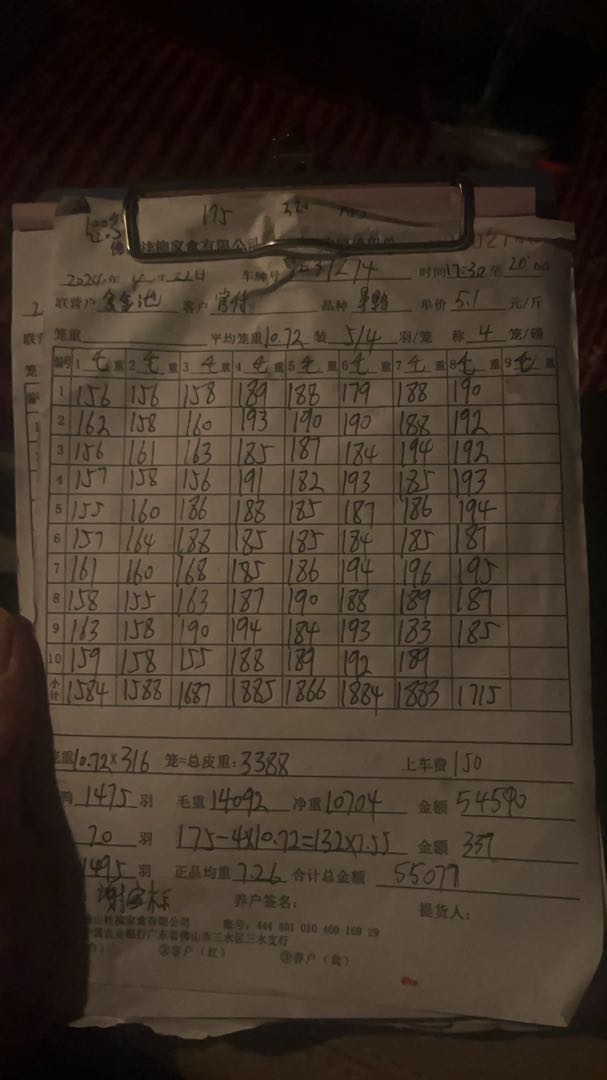 175
佛 桂柳家禽有限公司
车牌号 时间17:30至20:00
联营户 客户 品种 单价 5.1 元/斤
笼重 平均笼重10.72 装 5/4 羽/笼 称 4 笼/磅
编号 1 毛重 2 毛重 3 毛重 4 毛重 5 毛重 6 毛重 7 毛重 8 毛重 9 毛重
1 156 156 158 189 188 179 188 190
2 162 158 160 193 190 190 188 192
3 156 161 163 185 187 184 194 192
4 157 158 156 191 182 193 185 193
5 155 160 186 188 185 187 186 194
6 157 164 188 185 185 184 185 187
7 161 160 168 185 186 194 196 195
8 158 155 163 187 190 188 189 187
9 163 158 190 194 184 193 183 185
10 159 158 155 188 189 192 189
小计 1584 1588 1687 1885 1866 1884 1883 1715
笼重10.72×316 笼=总皮重:3388 上车费 150
1475 羽 毛重 14092 净重 10704 金额 54590
20 羽 175-4×10.72=132×2.55 金额 337
1495 羽 正品均重 7.26 合计总金额 55077
养户签名: 提货人:
佛山桂柳家禽有限公司 账号: 444 401 010 409 169 29
中国农业银行广东省佛山市三水区三水支行
白) ②客户(红) ③养户(黄)